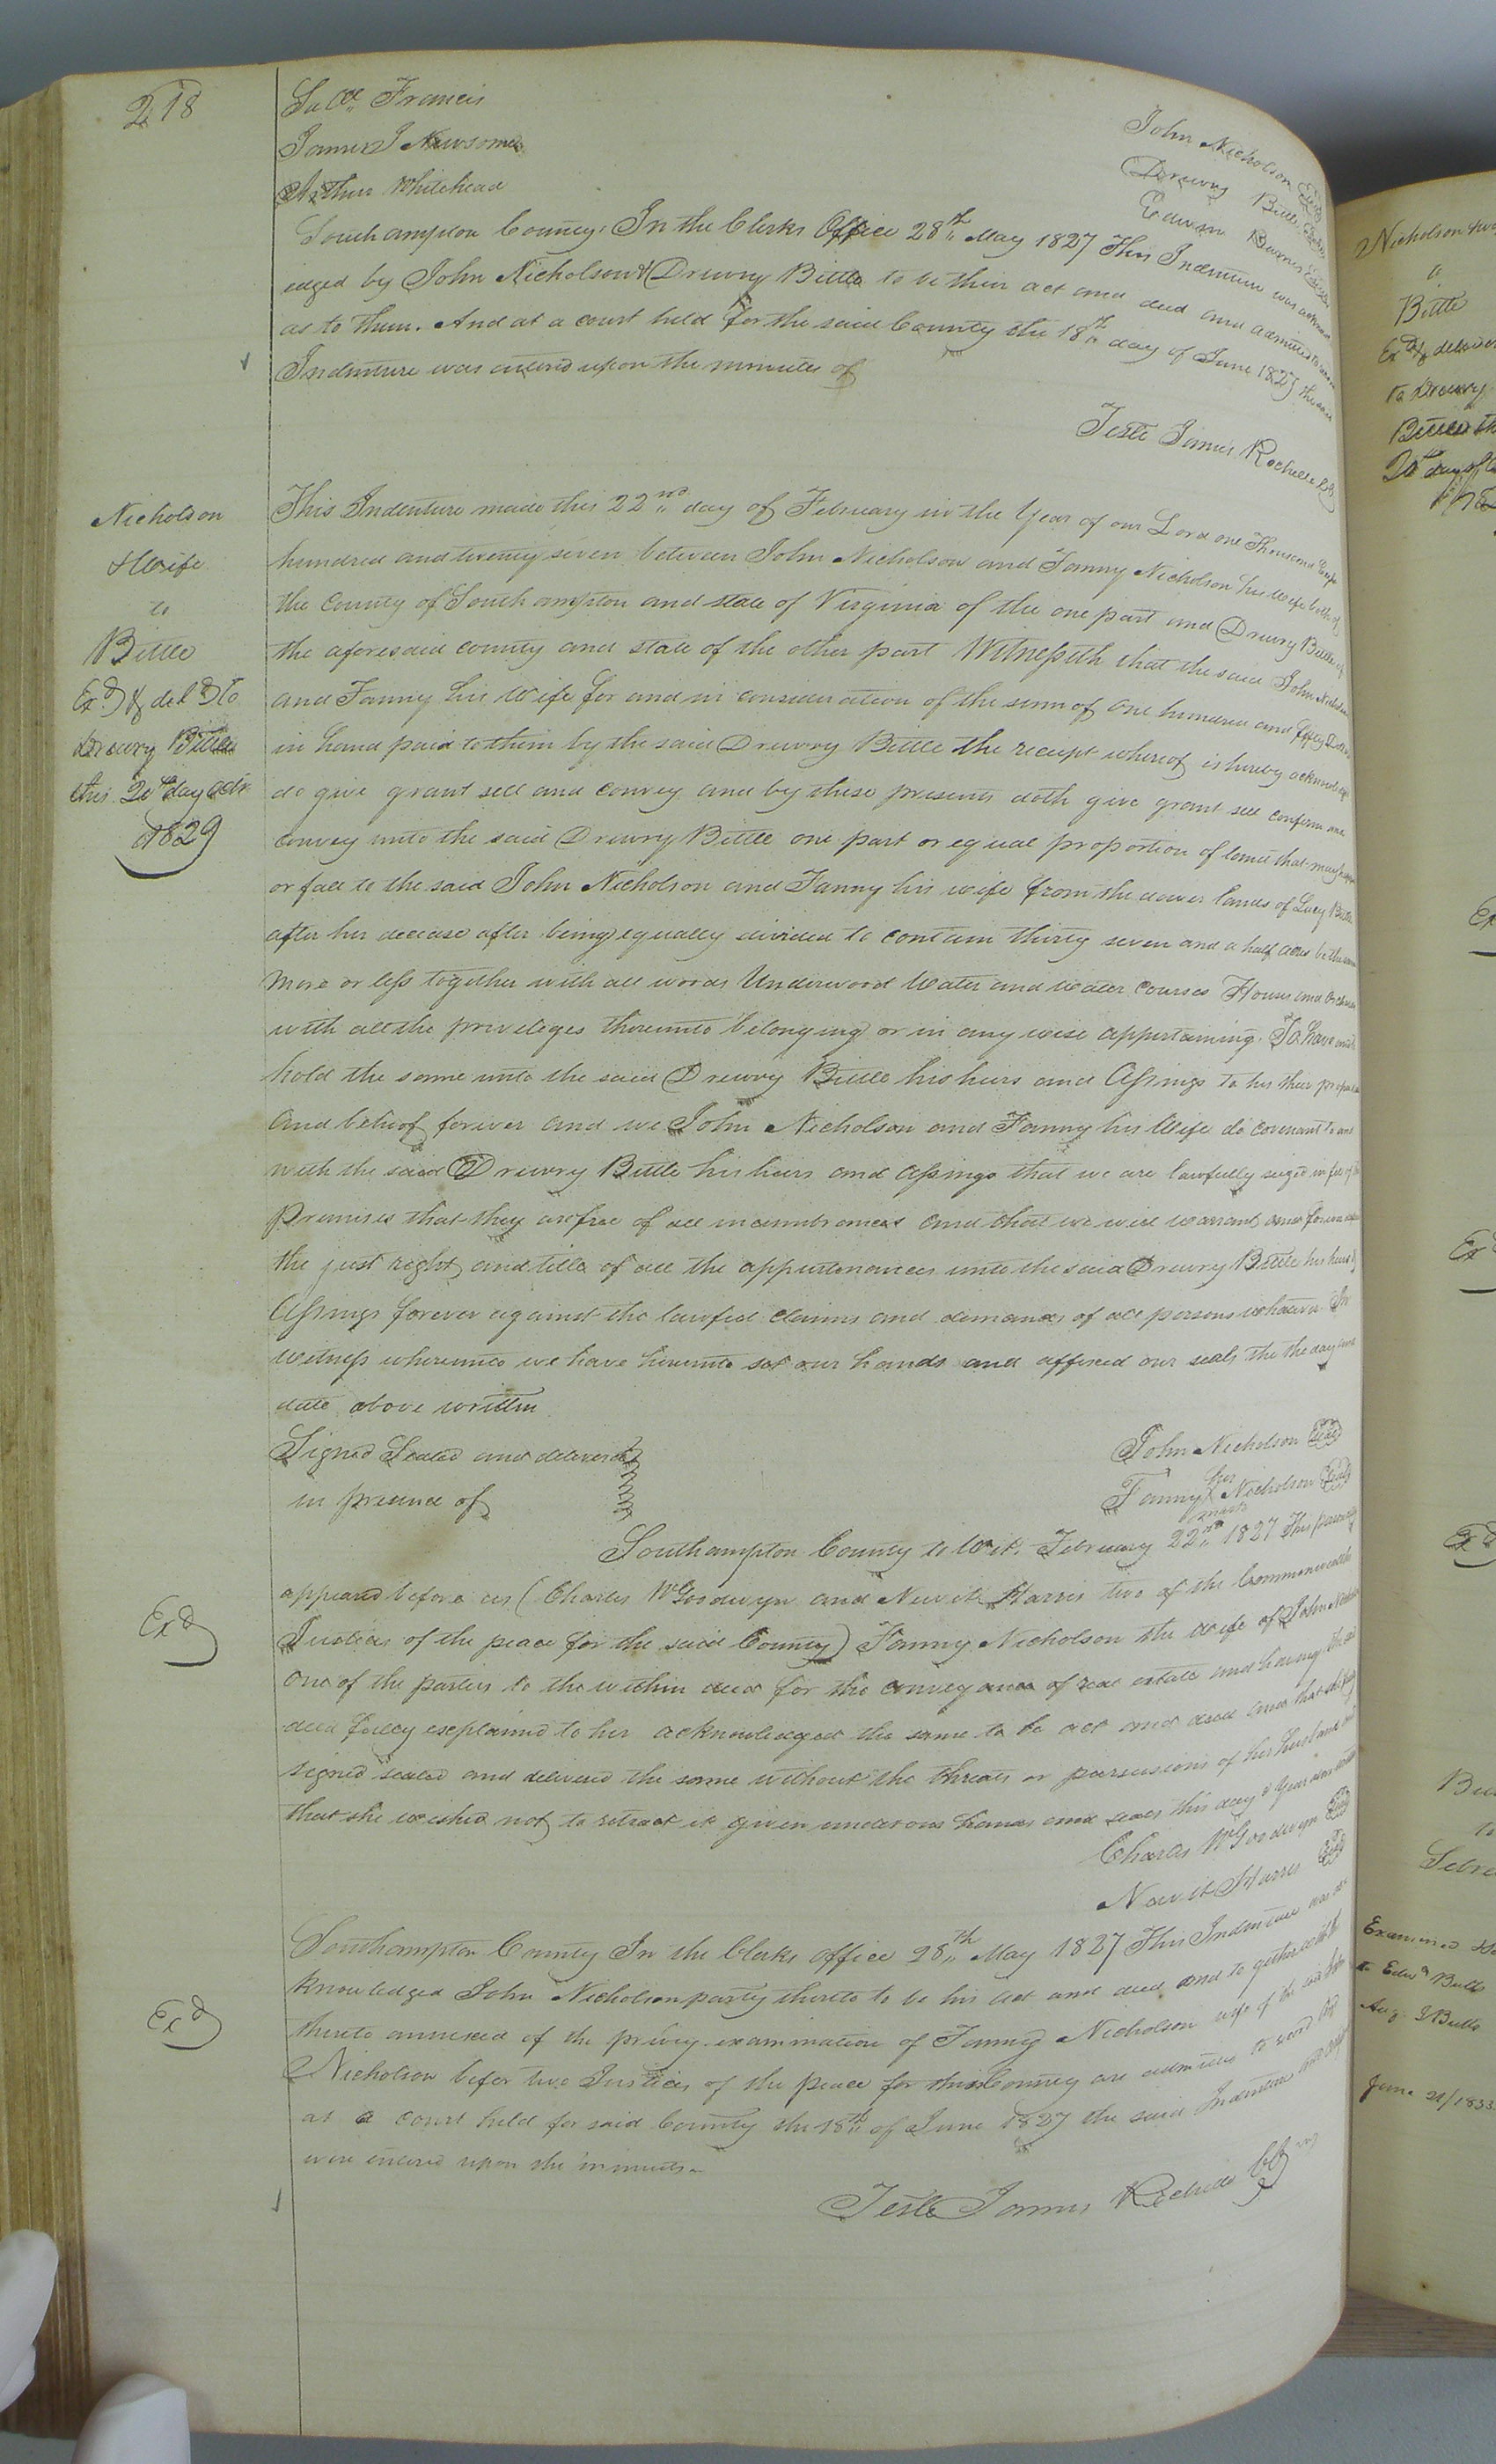 218
Francis
James J Newsome
Arthur Whitehead
John Nicholson
Drewry Bittle
Edwin Barnes
Southampton County. In the Clerks Office 28th May 1827 This Indenture was
edged by John Nicholson & Drewry Bittle to be their act and deed and admitted to
as to them. And at a court held for the said County the 18th day of June 1827 the said
Indenture was entered upon the minutes of
Teste James Rochelle
Nicholson
& Wife
to
Bittle
Exd & deld to
Drewry Bittle
this 20th day Octr
1829
This Indenture made this 22nd day of February in the Year of our Lord one Thousand
hundred and twenty seven between John Nicholson and Fanny Nicholson his wife both of
the County of Southampton and state of Virginia of the one part and Drewry Bittle of
the aforesaid county and state of the other part Witnesseth that the said John Nicholson
and Fanny his Wife for and in consideration of the sum of one hundred and fifty
in hand paid to them by the said Drewry Bittle the receipt whereof is hereby
do give grant sell and convey and by these presents doth give grant sell confirm and
convey unto the said Drewry Bittle one part or equal proportion of land that may
or fall to the said John Nicholson and Fanny his wife from the dower lands of Lucy Bittle
after her decease after being equally divided to contain thirty seven and a half acres be the same
more or less together with all woods Underwood Water and water courses Houses and
with all the privileges thereunto belonging or in any wise appertaining. To have and
hold the same unto the said Drewry Bittle his heirs and Assings to his their
And behoof forever and we John Nicholson and Fanny his Wife do covenant to and
with the said Drewry Bittle his heirs and assings that we are lawfully seized in fee of
Premises that they are free of all incumbrances and that we will warrant and
the just right and title of all the appurtenances unto the said Drewry Bittle his heirs &
Assings forever against the lawful claims and demands of all persons whatever In
witness whereunto we have hereunto set our hands and affixed our seals the the day and
date above written
Signed Sealed and delivered
in presence of
John Nicholson Seal
her
Fanny X Nicholson Seal
mark
Southampton County to Wit. February 22nd 1827 This
appeared before us (Charles W Goodwyn and Newit Harris two of the Commonwealth
Justices of the peace for the said County) Fanny Nicholson the wife of John
One of the parties to the within deed for the conveyance of real estate and having the
deed fully explained to her acknowledged the same to be act and deed and that she
signed sealed and delivered the same without the threats or persuasions of her husband
that she wished not to retract it given under our hands and seals this day & Year
Exd
Charles W Goodwyn Seal
Newit Harris Seal
Southampton County In the Clerks Office 28th May 1827 This Indenture was
knowledged John Nicholson party thereto to be his act and deed and together with
thereto annexed of the privy examination of Fanny Nicholson wife of the said John
Nicholson befor two Justices of the peace for this County are admitted to record
at a court held for said County the 18th of June 1827 the said Indenture
were entered upon the minutes
Exd
Teste James Rochelle
Nicholson
Bittle
to Drewry
20th day of
Examined
to Edwd Butts
June 21/1833